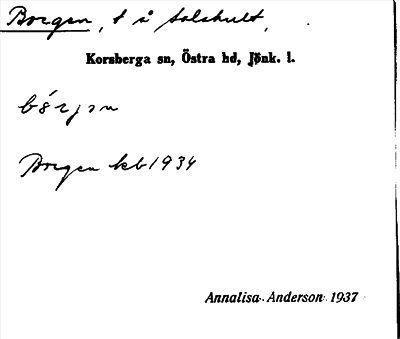 Borgen, t å Solshult,
Korsberga sn, Östra hd, Jönk. l.
bórjən
Borgen kb 1934
Annalisa Anderson 1937